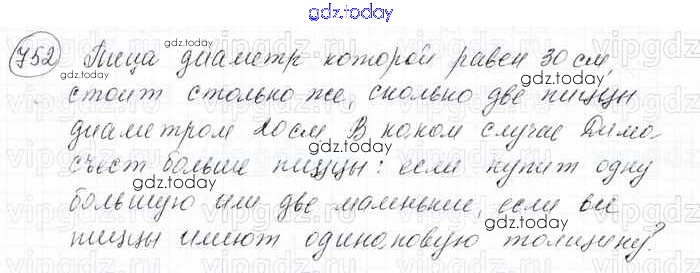 gdz.today
752 Пица диаметр которой равен 30 см,
gdz.today gdz.today
стоит столько же, сколько две пиццы
gdz.today
диаметром 20 см. В каком случае Дима
съест больше пиццы: если купит одну
gdz.today
большую или две маленькие, если все
gdz.today
пиццы имеют одинаковую толщину?
gdz.today